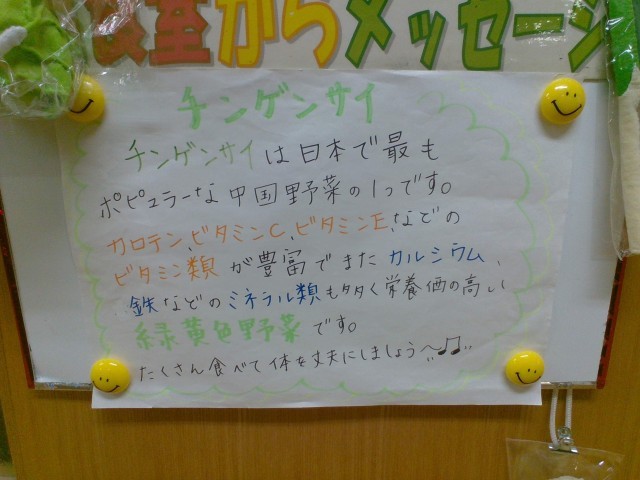 室からメッセージ
チンゲンサイ
チンゲンサイは日本で最も
ポピュラーな中国野菜の1つです。
カロテン、ビタミンC、ビタミンE、などの
ビタミン類が豊富でまたカルシウム、
鉄などのミネラル類も多く栄養価の高い
緑黄色野菜です。
たくさん食べて体を丈夫にしましょう〜♫